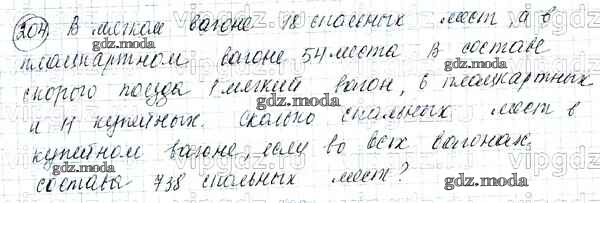 204) В мягком вагоне 18 спальных мест, а в
плацкартном вагоне 54 места В составе
скорого поезда 1 мягкий вагон, 6 плацкартных
и 11 купейных. Сколько спальных мест в
купейном вагоне, если во всех вагонах
состава 738 спальных мест?
gdz.moda
gdz.moda
gdz.moda
gdz.moda
gdz.moda
vipgdz
vipgdz